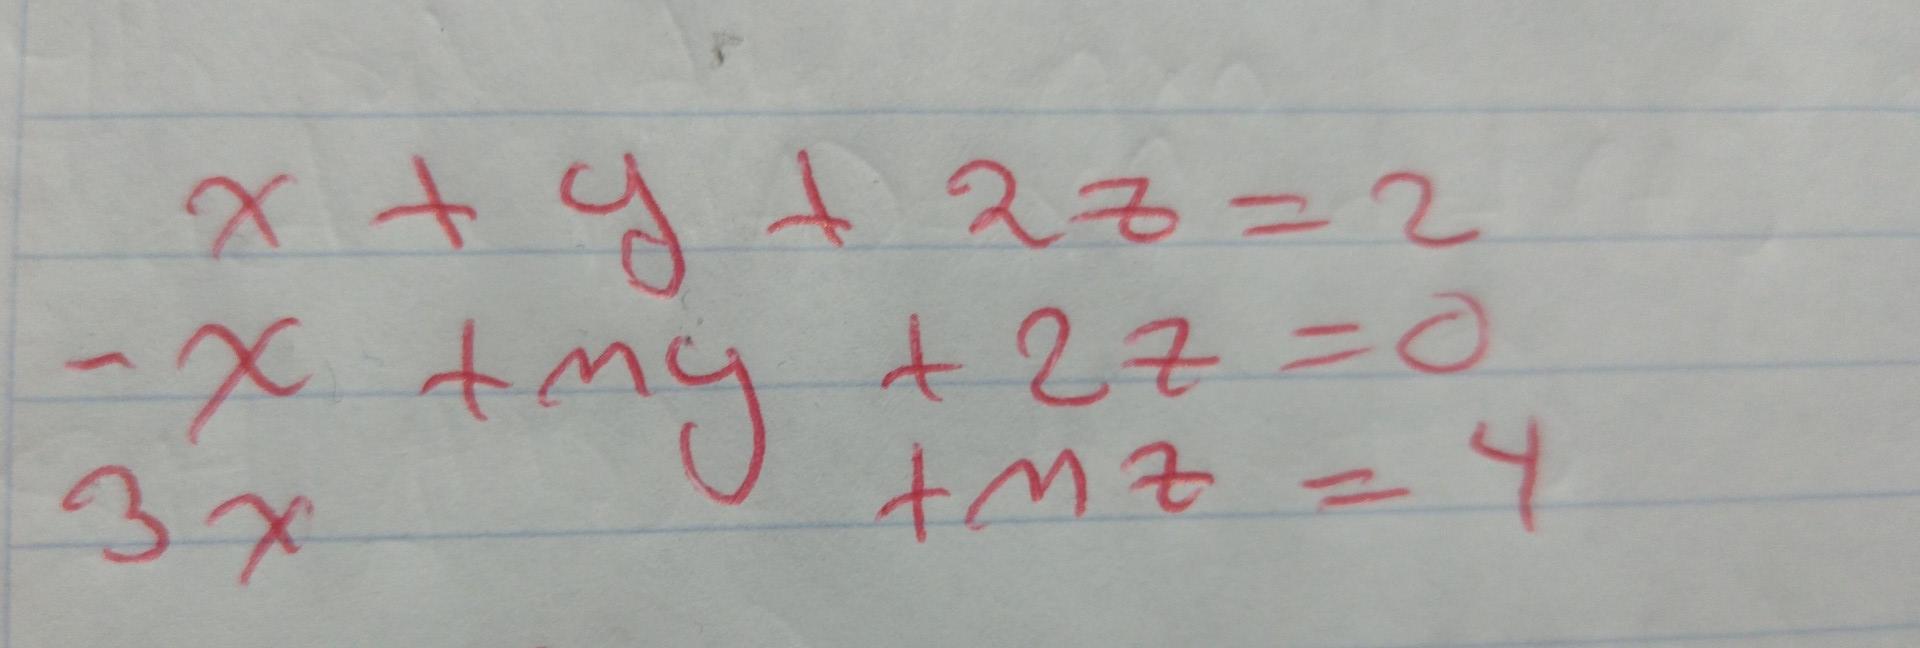 x + y + 2z = 2
-x + my + 2z = 0
3x + mz = 4